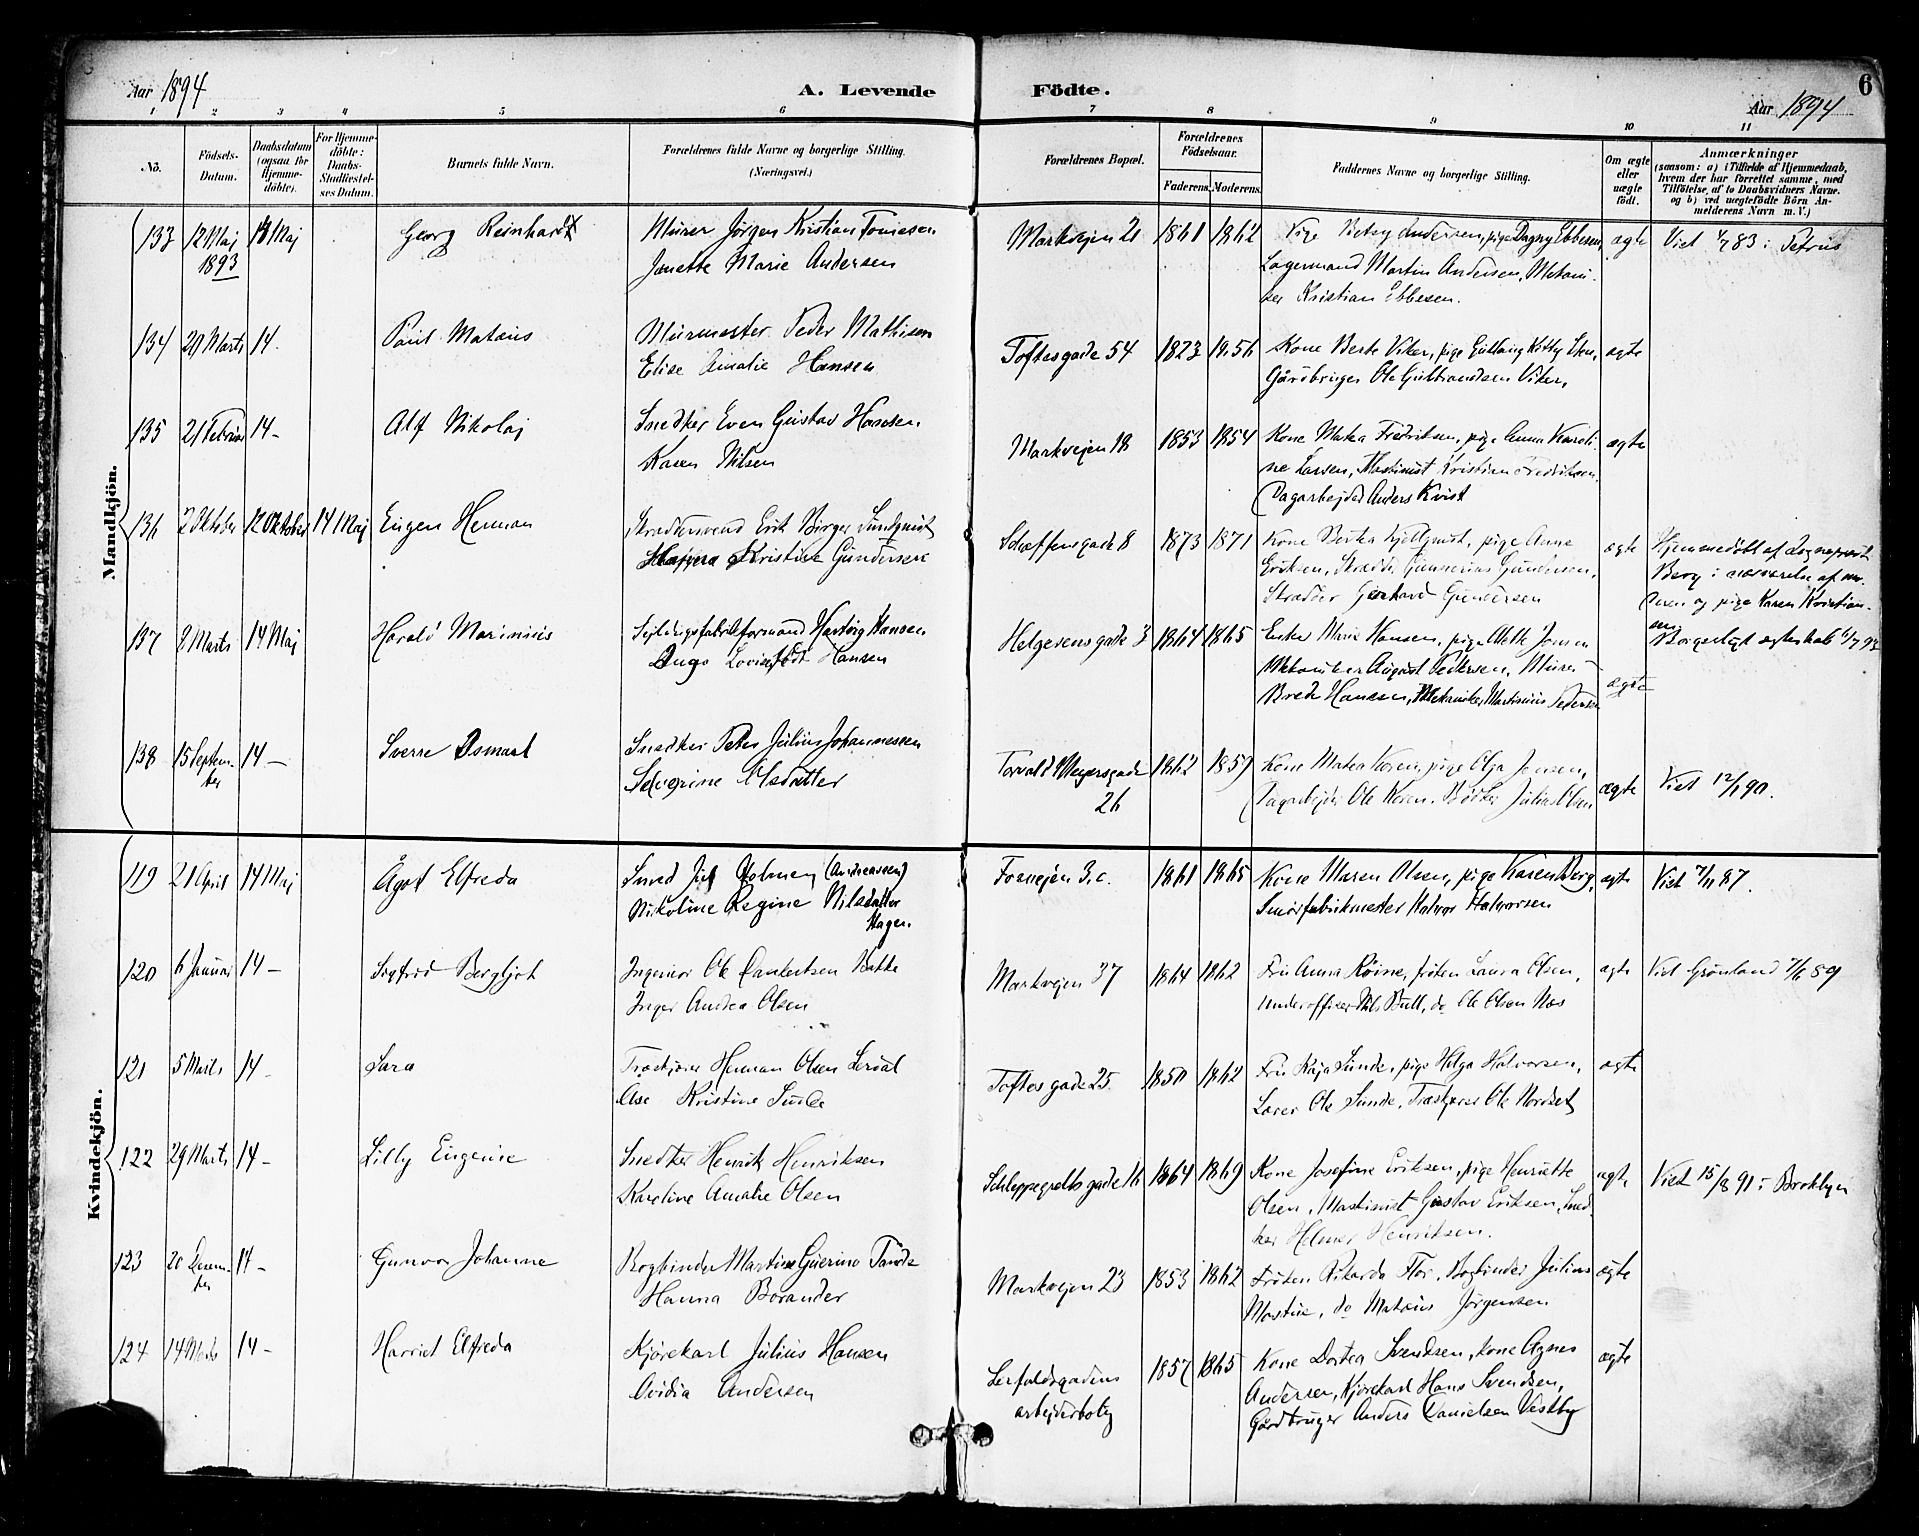 Aar 1894
A. Levende Födte.
6
Aar 1894
1 2 3 4 5 6 7 8 9 10 11
No.
Födsels-Datum.
Daabsdatum (ogsaa for Hjemme-döbte).
For Hjemme-döbte: Daabs-Stadfæstel-ses Datum.
Barnets fulde Navn.
Forældrenes fulde Navne og borgerlige Stilling. (Næringsvei.)
Forældrenes Bopæl.
Forældrenes Födselsaar.
Faderens. Moderens.
Faddernes Navne og borgerlige Stilling.
Om ægte eller uægte födt.
Anmærkninger
(saasom: a) i Tilfælde af Hjemmedaab,
hvem der har forrettet samme, med
Tilföielse af to Daabsvidners Navne.
og b) ved uægtefödte Börn An-
melderens Navn m. V.)
Mandkjön.
133 12 Maj 1893 13 Maj Georg Reinhardt
Murer Jørgen Kristian Tomesen
Janette Marie Andersen
Markvejen 21 1861 1862
Pige Betsy Andersen, pige Dagny Ebbesen,
Lagermand Martin Andersen, Mekani-
ker Kristian Ebbesen.
ægte
Viet 83 i Petrus
134 29 Marts 14. Paul Matæus
Murmester Peder Mathisen
Elise Amalie Hansen
Toftesgade 54 1823 1856
Kone Berte Viker, pige Kitty
Gårdbruger Ole Gulbrandsen Viker,
ægte
135 21 Februar 14- Alf Nikolaj
Snedker Even Gustav Hansen
Karen Nilsen
Markvejen 18 1853 1854
Kone Matea Fredriksen, pige Anna Karoli-
ne Larsen, Maskinist Kristian Fredriksen,
Dagarbejder Anders Kvist
ægte
136 2 Oktober 12 Oktober 14 Maj Eugen Herman
Skræddersvend Erik Birger Sundqvist
Kristine Gundersen
Schaeffersgade 8 1873 1871
Kone Berta Kjellqvist, pige Anne
Eriksen, Skrædder Gunnerius Gundersen,
Skrædder Gerhard Gundersen
ægte
Hjemmedøbt af Sogneprest
Berg i nærværelse af mo-
deren og pige Karen Kristian-
sen
137 8 Marts 14 Maj Harald Marinius
Hartvig Hansen
Inga Lovise født Hansen
Helgesensgade 3 1864 1865
Enke Marie Hansen, pige
Mekaniker August Pedersen, Murer
Brede Hansen, Mekaniker Martinius Pedersen
ægte
Borgerligt ægteskab
138 15 Septem-ber 14 - Sverre Osmart
Snedker Peter Julius Johannessen
Severine Olsdatter
Torvald Meyersgade 26 1862 1857
Kone Matea Koren, pige Olga Jensen,
Dagarbejder Ole Koren, Bødker Julius Olsen
ægte
Viet 12/1 90.
Kvindekjön.
119 21 April 14 Maj Ågot Elfreda
Smed Holmen (Andreassen)
Nikoline Regine Nilsdatter
Hagen.
Fossvejen 3.c. 1861 1865
Kone Maren Olsen, pige Karen Berg,
Smørfabrikmester Halvor Halvorsen
ægte
Viet 7/11 87.
120 6 Januar 14 - Sigfrid Bergljot
Ingeniør Ole Bakke
Inger Andrea Olsen
Markvejen 37 1864 1862
Fru Anna Roine, frøken Laura Olsen,
Underofficer Nils Bull, do Ole Olsen Næs
ægte
Viet Grønland 7/6 89
121 5 Marts 14 - Sara
Træskjærer Herman Olsen Lerdal
Åse Kristine Sunde
Toftesgade 25. 1850 1862
Fru Kaja Sunde, pige Helga Halvorsen,
Lærer Ole Sunde, Træskjærer Ole Nordset
ægte
122 29 Marts 14 - Lilly Eugenie
Snedker Henrik Henriksen
Karoline Amalie Olsen
Schleppegrellsgade 16 1864 1869
Kone Josefine Eriksen, pige Henriette
Olsen, Maskinist Gustav Eriksen, Sned-
ker Helmer Henriksen.
ægte
Viet 15/8 91 i Brooklyn
123 20 Decem-ber 14 - Gunvor Johanne
Bogbinder Martin Guerino
Hanna Borander
Markvejen 23 1853 1862
Frøken Rikarda Flor, Bogbinder Julius
Mostue, do Matæus Jørgensen
ægte
124 14 Marts 14 - Harriet Elfreda
Kjørekarl Julius Hansen
Ovidia Andersen
Lerfaldsgadens
arbejderbolig 1857 1865
Kone Dortea Svendsen, kone Agnes
Andersen, Kjørekarl Hans Svendsen,
Gårdbruger Anders Danielsen Vestby
ægte